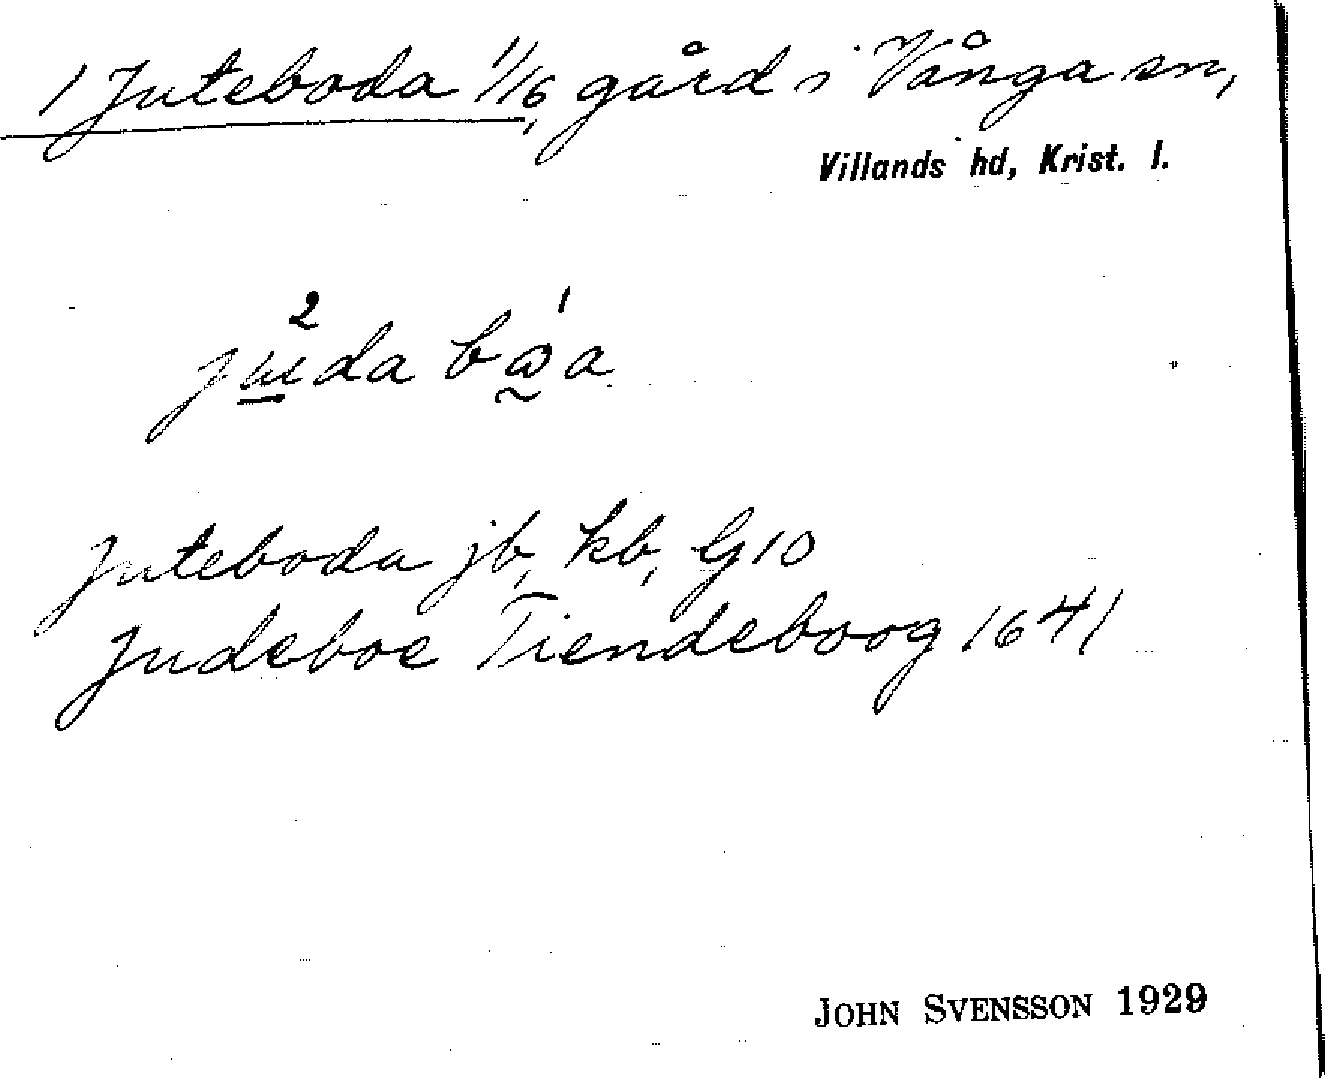 1 Juteboda 1/16, gård i Vånga sn,
Villands hd, Krist. l.
Juteboda jb, kb, G10
Judeboe Tiendeboog 1641
JOHN SVENSSON 1929